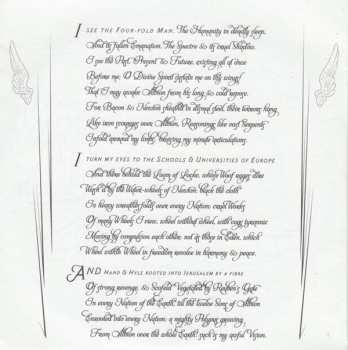 I see the Four-fold Man. The Humanity in deadly sleep,
And its fallen Emanation. The Spectre & its cruel Shadow.
I see the Past, Present & Future, existing all at once
Before me; O Divine Spirit sustain me on thy wings!
That I may awake Albion from his long & cold repose.
For Bacon & Newton sheathed in dismal steel, their terrors hang
Like iron scourges over Albion. Reasonings like vast Serpents
Infold around my limbs, bruising my minute articulations.
I turn my eyes to the Schools & Universities of Europe
And there behold the Loom of Locke, whose Woof rages dire
Wash'd by the Water-wheels of Newton: black the cloth
In heavy wreathes folds over every Nation: cruel Works
Of many Wheels I view, wheel without wheel, with cogs tyrannic
Moving by compulsion each other: not as those in Eden, which
Wheel within Wheel in freedom revolve in harmony & peace.
And Hand & Hyle rooted into Jerusalem by a fibre
Of strong revenge, & Skofeld Vegetated by Reuben's Gate
In every Nation of the Earth, till the twelve Sons of Albion
Enrooted into every Nation: a mighty Polypus growing
From Albion over the whole Earth: such is my awful Vision.